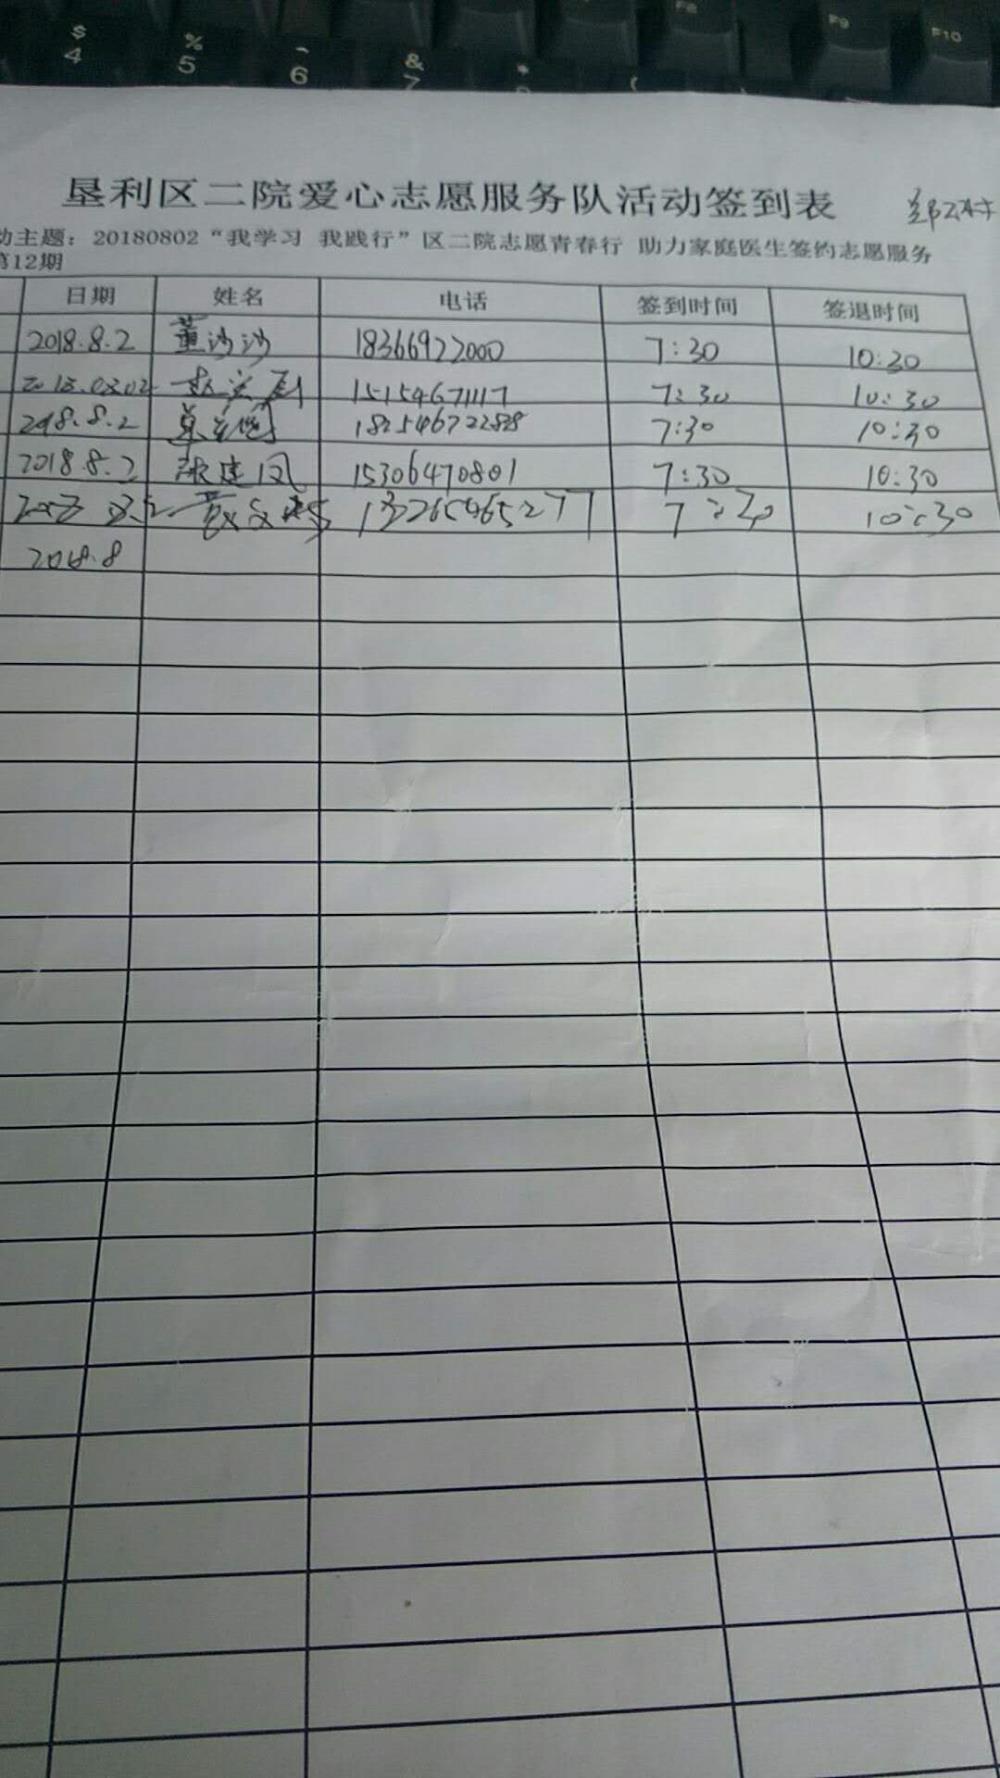 $ % ^ & * F8 F9 F10
4 5 6 7
垦利区二院爱心志愿服务队活动签到表
动主题：20180802“我学习 我践行”区二院志愿青春行 助力家庭医生签约志愿服务
第12期
日期 姓名 电话 签到时间 签退时间
2018.8.2 董沙沙 18366922000 7:30 10:30
15154671117 7:30 10:30
2018.8.2 7:30 10:30
2018.8.2 张建凤 15306470801 7:30 10:30
7:30 10:30
2018.8